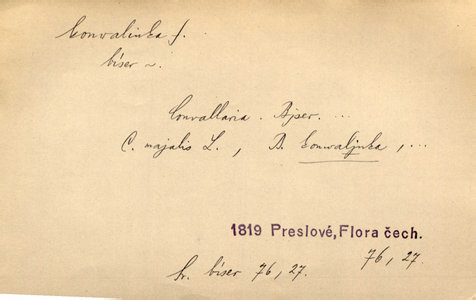 konvalinka f.
bíser ~.
Convallaria. Bjser. ...
C. majalis L., B. konwaljnka, ...
1819 Preslové, Flora čech.
76, 27.
sr. bíser 76, 27.